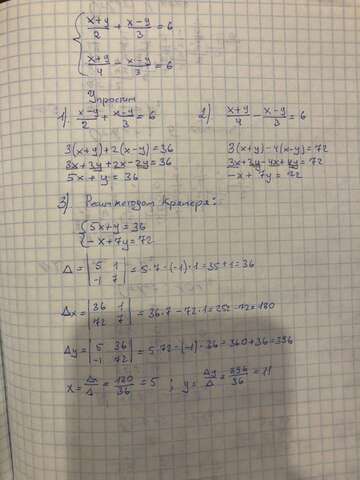 { (x+y)/2 + (x-y)/3 = 6
(x+y)/4 - (x-y)/3 = 6
Упростим
1) (x-y)/2 + (x-y)/3 = 6
3(x+y)+2(x-y)=36
3x+3y+2x-2y=36
5x+y=36
2) (x+y)/4 - (x-y)/3 = 6
3(x+y)-4(x-y)=72
3x+3y-4x+4y=72
-x+7y=72
3) Реш. методом Крамера:
{ 5x+y=36
-x+7y=72
Δ = | 5 1 ; -1 7 | = 5·7-(-1)·1=35+1=36
Δx = | 36 1 ; 72 7 | = 36·7-72·1=252-72=180
Δy = | 5 36 ; -1 72 | = 5·72-(-1)·36=360+36=396
x = Δx/Δ = 180/36 = 5 ; y = Δy/Δ = 396/36 = 11